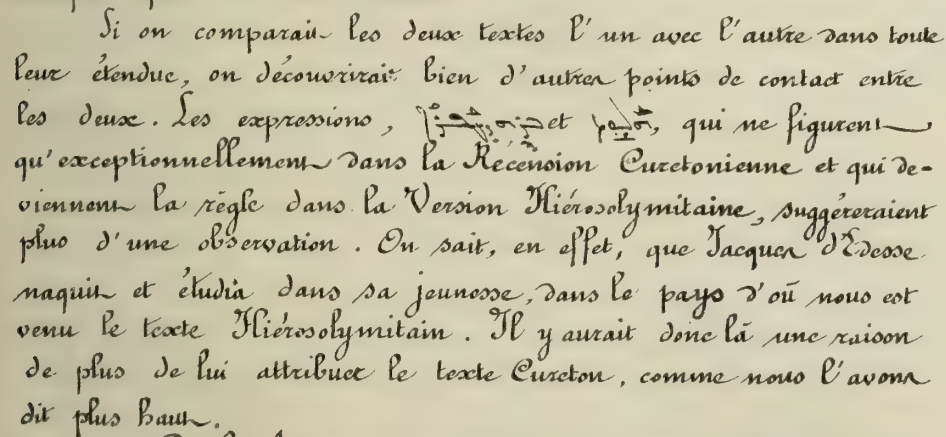 Si on comparait les deux textes l'un avec l'autre dans toute
leur étendue, on découvrirait bien d'autres points de contact entre
les deux. Les expressions, et , qui ne figurent
qu'exceptionnellement dans la Recension Curetonienne et qui de-
viennent la règle dans la Version Hiérosolymitaine, suggéreraient
plus d'une observation. On sait, en effet, que Jacques d'Edesse
naquit et étudia dans sa jeunesse, dans le pays d'où nous est
venu le texte Hiérosolymitain. Il y aurait donc là une raison
de plus de lui attribuer le texte Cureton, comme nous l'avons
dit plus haut.